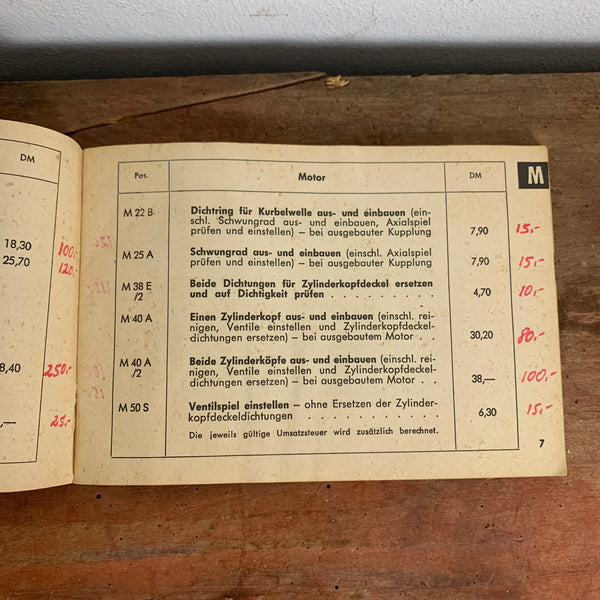 DM
18,30 100,-
25,70 120,-
8,40 250,-
,— 25,-
Pos. Motor DM M
M 22 B Dichtring für Kurbelwelle aus- und einbauen (ein-
schl. Schwungrad aus- und einbauen, Axialspiel
prüfen und einstellen) – bei ausgebauter Kupplung 7,90 15,-
M 25 A Schwungrad aus- und einbauen (einschl. Axialspiel
prüfen und einstellen) – bei ausgebauter Kupplung 7,90 15,-
M 38 E Beide Dichtungen für Zylinderkopfdeckel ersetzen
/2 und auf Dichtigkeit prüfen . . . . . . . . 4,70 10,-
M 40 A Einen Zylinderkopf aus- und einbauen (einschl. rei-
nigen, Ventile einstellen und Zylinderkopfdeckel-
dichtungen ersetzen) – bei ausgebautem Motor . . 30,20 80,-
M 40 A Beide Zylinderköpfe aus- und einbauen (einschl. rei-
/2 nigen, Ventile einstellen und Zylinderkopfdeckel-
dichtungen ersetzen) – bei ausgebautem Motor . . . 38,— 100,-
M 50 S Ventilspiel einstellen – ohne Ersetzen der Zylinder-
kopfdeckeldichtungen . . . . . . . . . . 6,30 15,-
Die jeweils gültige Umsatzsteuer wird zusätzlich berechnet.
7